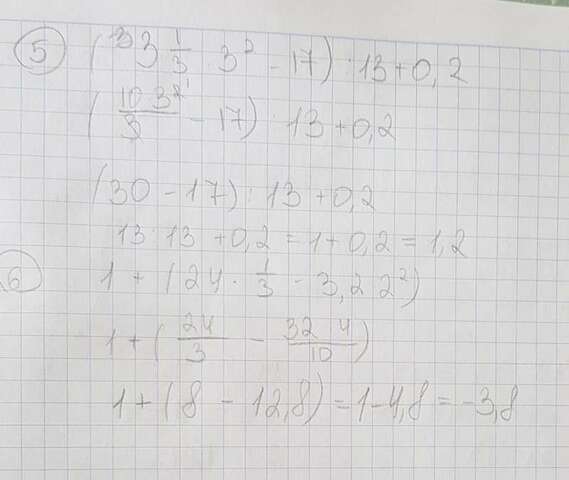 5 (3 3 1/3 · 3² - 17) : 13 + 0,2
(10 · 3²/3 - 17) : 13 + 0,2
(30 - 17) : 13 + 0,2
13 : 13 + 0,2 = 1 + 0,2 = 1,2
6 1 + (24 · 1/3 - 3,2 · 2²)
1 + (24/3 - 32 · 4/10)
1 + (8 - 12,8) = 1 - 4,8 = -3,8